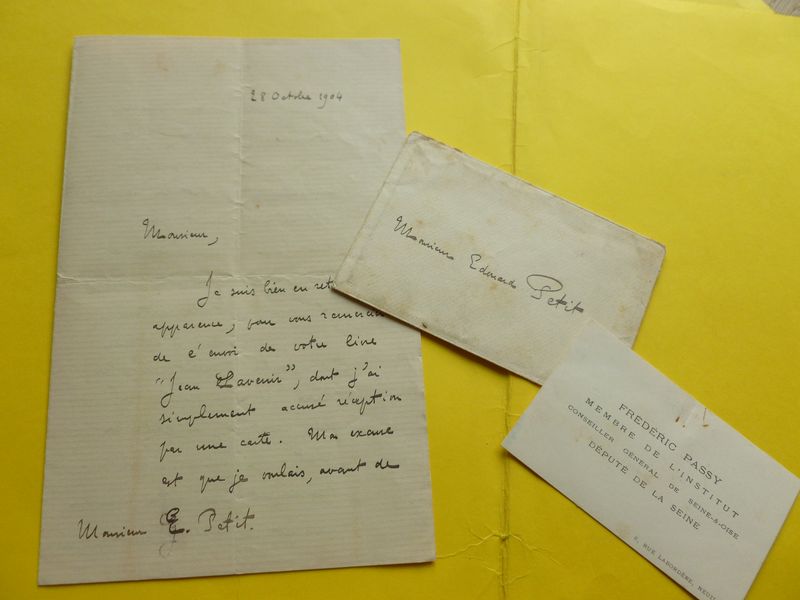 28 Octobre 1904
Monsieur,
Je suis bien en ret
apparence, pour vous remercier
de l'envoi de votre livre
"Jean Lavenir", dont j'ai
simplement accusé réception
par une carte. Mon excuse
est que je voulais, avant de
Monsieur E. Petit.
Monsieur Edouard Petit
FRÉDÉRIC PASSY
MEMBRE DE L'INSTITUT
CONSEILLER GÉNÉRAL DE SEINE-&-OISE
DÉPUTÉ DE LA SEINE
8, RUE LABORDÈRE, NEUIL